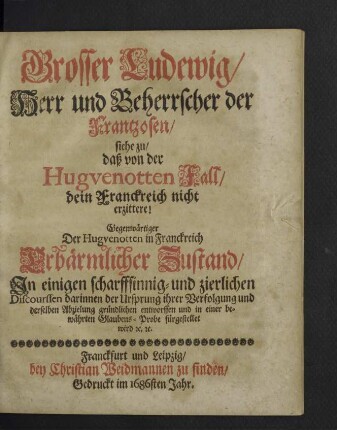 Grosser Ludewig/
Herr und Beherrscher der
Frantzosen/
siehe zu/
daß von der
Hugvenotten Fall/
dein Franckreich nicht
erzittere!
Gegenwärtiger
Der Hugvenotten in Franckreich
Erbärmlicher Zustand/
In einigen scharffsinnig- und zierlichen
Discourssen darinnen der Ursprung ihrer Verfolgung und
derselben Abzielung gründlichen entworffen und in einer be-
währten Glaubens-Probe fürgestellet
wird ꝛc. ꝛc.
Franckfurt und Leipzig/
bey Christian Weidmannen zu finden/
Gedruckt im 1686sten Jahr.